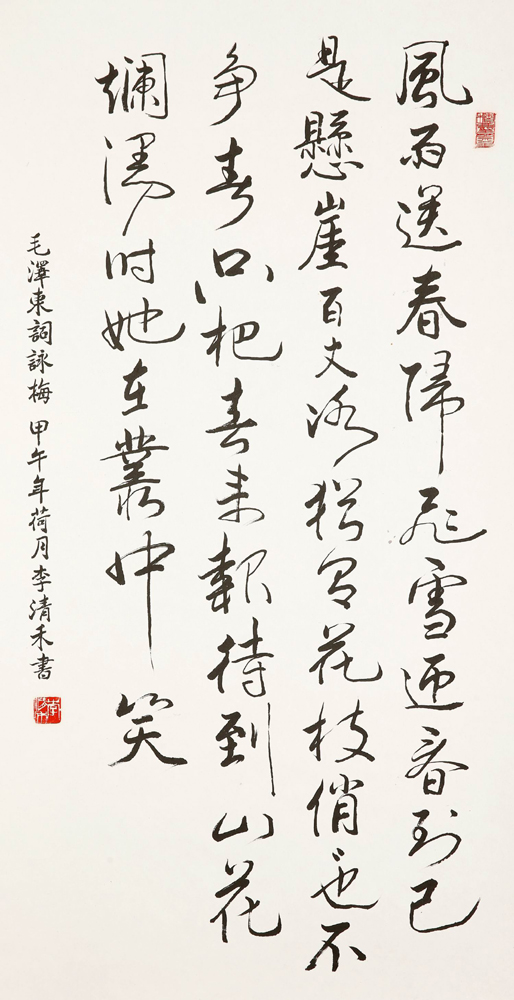 風雨送春歸飛雪迎春到已
是懸崖百丈冰猶有花枝俏也不
争春只把春来報待到山花
爛漫时她在叢中笑
毛澤東詞詠梅 甲午年荷月李清禾書